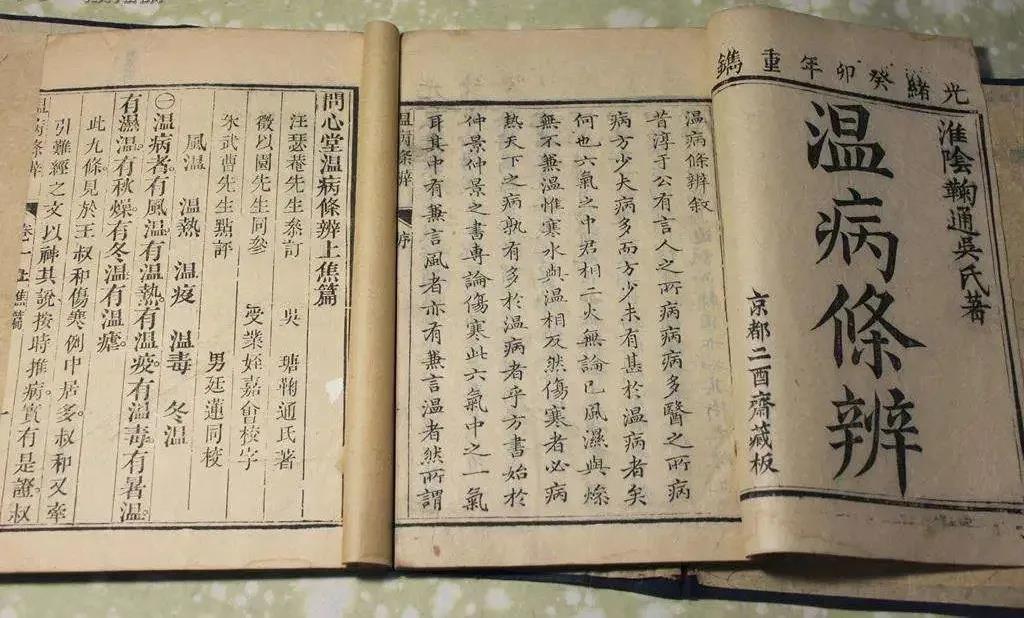 光緒癸卯年重鐫
淮陰鞠通吳氏著
温病條辨
京都二酉齋藏板
温病條辨叙
昔淳于公有言人之所病病病多醫之所病
病方少夫病多而方少未有甚於温病者矣
何也六氣之中君相二火無論已風濕與燥
無不兼温惟寒水與温相反然傷寒者必病
熱天下之病孰有多於温病者乎方書始於
仲景仲景之書專論傷寒此六氣中之一氣
耳其中有兼言風者亦有兼言温者然所謂
温病條辨
序
問心堂温病條辨上焦篇
汪瑟菴先生叅訂 吳 瑭鞠通氏著
徵以園先生同參 受業姪嘉會校字
朱武曹先生點評 男廷蓮同校
風温 温熱 温疫 温毒 冬温
㊀温病者。有風温有温熱。有温疫。有温毒。有暑温。
有濕温。有秋燥。有冬温。有温瘧。
此九條。見於王叔和傷寒例中居多。叔和又牽
引難經之文以神其說。按時推病。實有是證。叔
温病條辨
卷一上焦篇